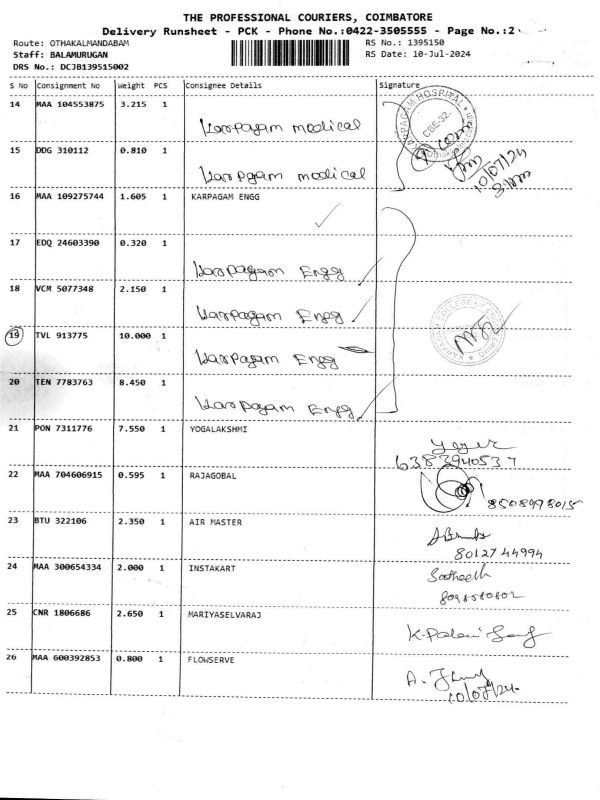 THE PROFESSIONAL COURIERS, COIMBATORE
Delivery Runsheet - PCK - Phone No.:0422-3505555 - Page No.:2
Route: OTHAKALMANDABAM
RS No.: 1395150
Staff: BALAMURUGAN
RS Date: 10-Jul-2024
DRS No.: DCJB139515002
S No Consignment No Weight PCS Consignee Details Signature
14 MAA 104553875 3.215 1
Karpagam medical
KARPAGAM HOSPITAL
CBE-32.
15 DDG 310112 0.810 1
Karpagam medical
10/07/24
16 MAA 109275744 1.605 1 KARPAGAM ENGG
17 EDQ 24603390 0.320 1
Karpagam Engg
18 VCM 5077348 2.150 1
Karpagam Engg
19 TVL 913775 10.000 1
Karpagam Engg
20 TEN 7783763 8.450 1
Karpagam Engg
21 PON 7311776 7.550 1 YOGALAKSHMI
6383940537
22 MAA 704606915 0.595 1 RAJAGOBAL
8508998015
23 BTU 322106 2.350 1 AIR MASTER
8012744994
24 MAA 300654334 2.000 1 INSTAKART
Satheesh
25 CNR 1806686 2.650 1 MARIYASELVARAJ
26 MAA 600392853 0.800 1 FLOWSERVE
10/07/24